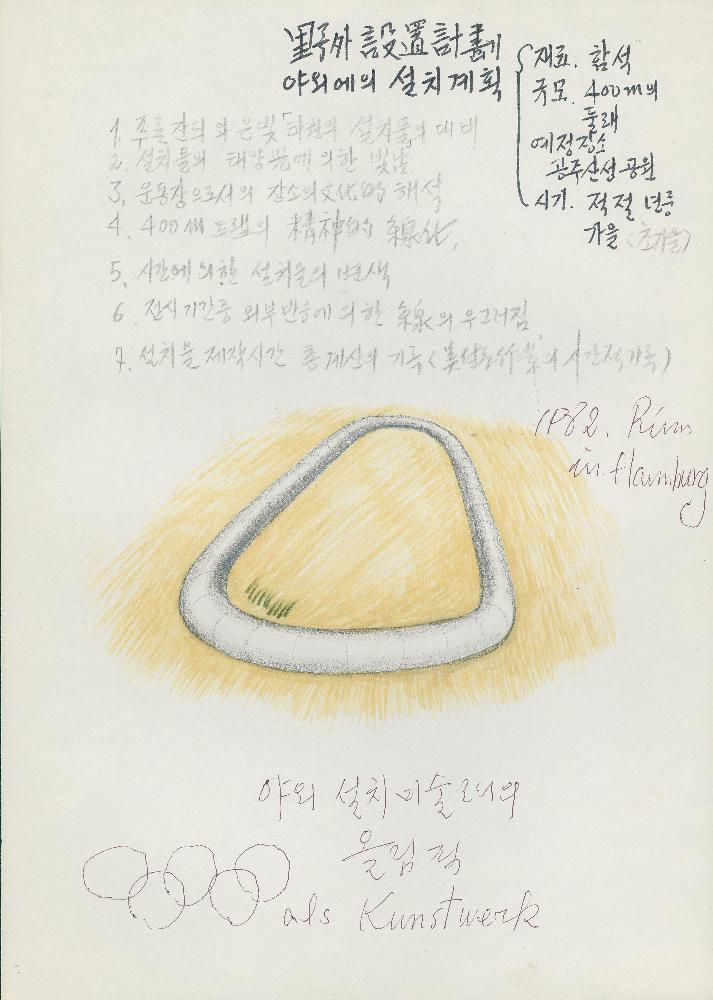 野外 設置 計劃
야외에의 설치 계획
재료. 함석
규모. 400m의
둘래
예정장소
공주산성공원
시기. 적절 년중
가을 (초가을)
1. 푸른 잔디와 은빛 타원의 설치물의 대비
2. 설치물의 태양光에 의한 빛남
3. 운동장으로서의 장소의 文化的 해석
4. 400m 트랙의 精神的 線化.
5. 시간에 의한 설치물의 변색
6. 전시기간중 외부반응에 의한 線의 우그러짐
7. 설치물 제작시간 총계산의 기록 ( 의 시간적기록)
1982. Rim
in. Hamburg
야외 설치미술
올림픽
als Kunstwerk